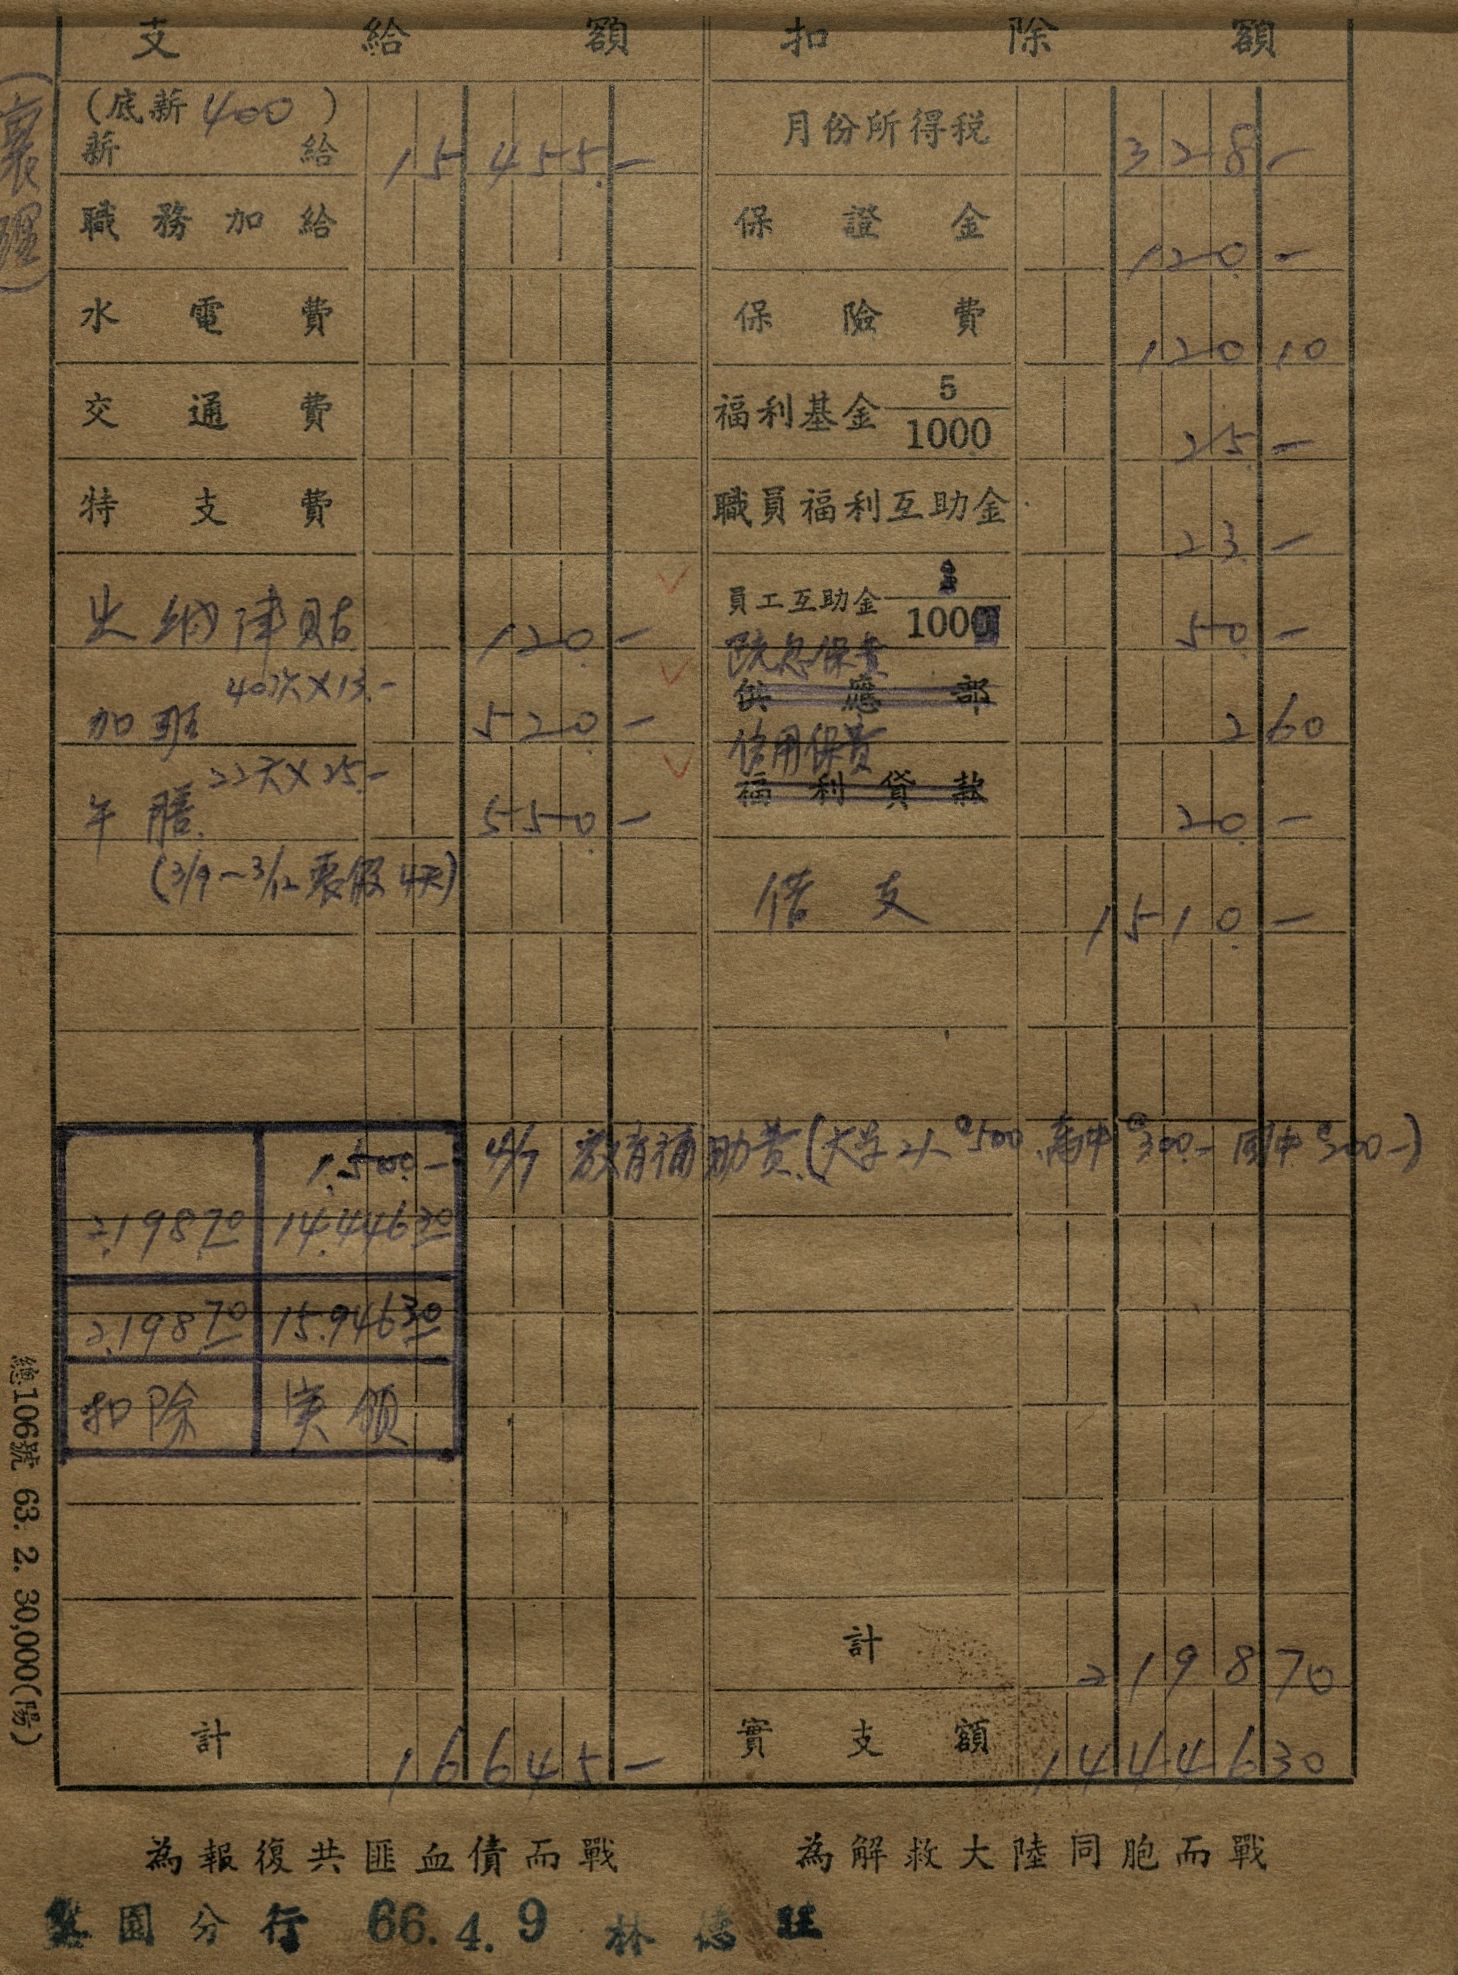 支給額 扣除額
(襄理)
(底薪400)
薪給 15455.— 月份所得稅 328—
職務加給 保證金 120.—
水電費 保險費 120 10
交通費 福利基金 5/1000 25.—
特支費 職員福利互助金 23.—
出納津貼 120.— 員工互助金 /1000 50.—
40次×13.— 疾患保費
加班 520.— 供應部 2 60
22天×25.— 信用保費
午膳 550.— 福利貸款 20.—
(3/9~3/12喪假4天) 借支 1510.—
1,500.— 4/7 教育補助費(大學2人@500. 高中@300.— 國中@200—)
2,198 70 14,446 30
2,198 70 15,946 30
扣除 実領
計 2198 70
計 16645— 實支額 14446 30
總106號 63. 2. 30,000(陽)
為報復共匪血債而戰 為解救大陸同胞而戰
園分行 66.4.9 林德旺